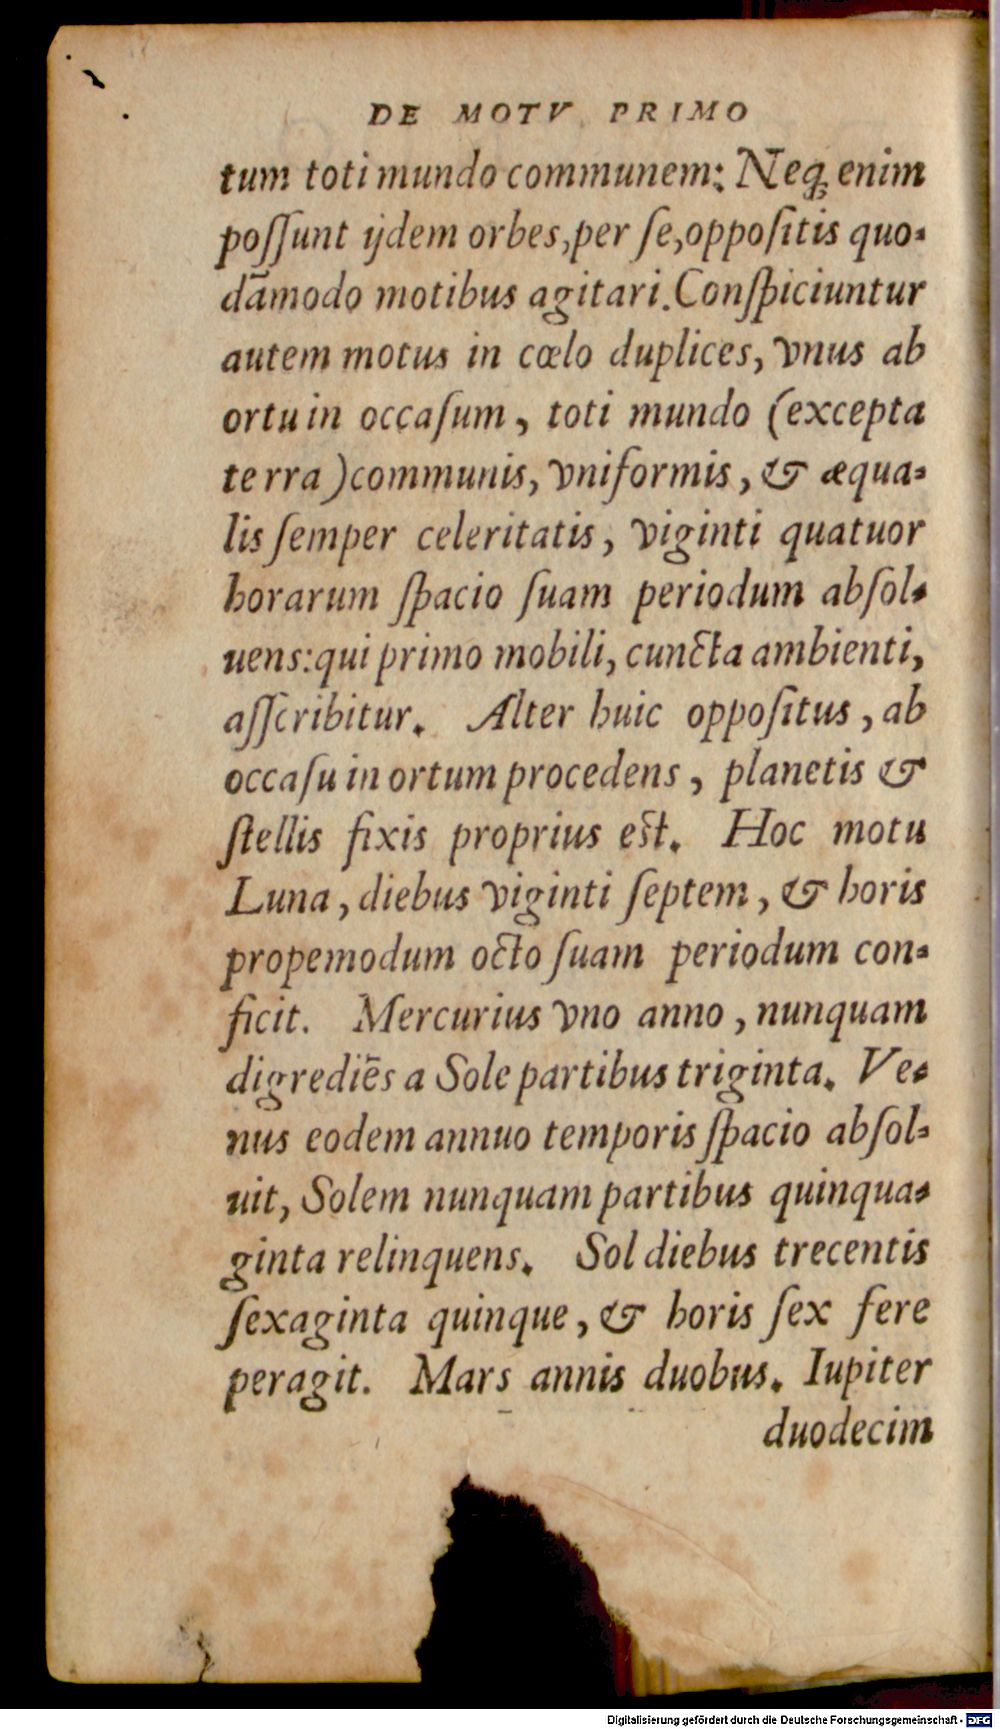 DE MOTV PRIMO
tum toti mundo communem: Neq; enim
poſſunt ijdem orbes, per ſe, oppoſitis quo-
dāmodo motibus agitari. Conſpiciuntur
autem motus in cœlo duplices, vnus ab
ortu in occaſum, toti mundo (excepta
terra) communis, vniformis, & æqua-
lis ſemper celeritatis, viginti quatuor
horarum ſpacio ſuam periodum abſol-
uens: qui primo mobili, cuncta ambienti,
aſſcribitur. Alter huic oppoſitus, ab
occaſu in ortum procedens, planetis &
ſtellis fixis proprius est. Hoc motu
Luna, diebus viginti ſeptem, & horis
propemodum octo ſuam periodum con-
ficit. Mercurius vno anno, nunquam
digrediēs a Sole partibus triginta. Ve-
nus eodem annuo temporis ſpacio abſol-
uit, Solem nunquam partibus quinqua-
ginta relinquens. Sol diebus trecentis
ſexaginta quinque, & horis ſex fere
peragit. Mars annis duobus. Iupiter
duodecim
Digitalisierung gefördert durch die Deutsche Forschungsgemeinschaft - DFG